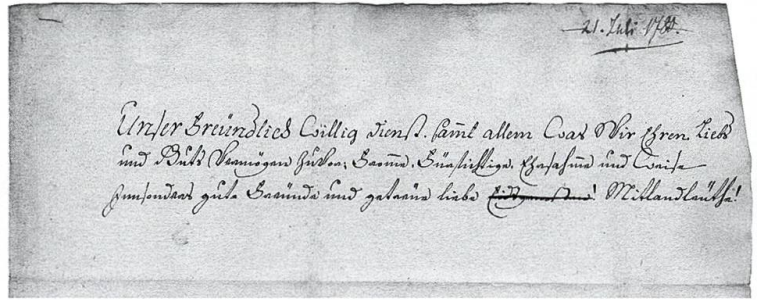 21. Juli
Unser Freündlich Willig dienst. samt allem Was Wir Ehren Liebs
und Guts Vermögen zuvor; Fromme. Fürsichtige. Ehrsamme und Weise
Innsonders gute Freünde und getreüe liebe Mitlandleüthe!